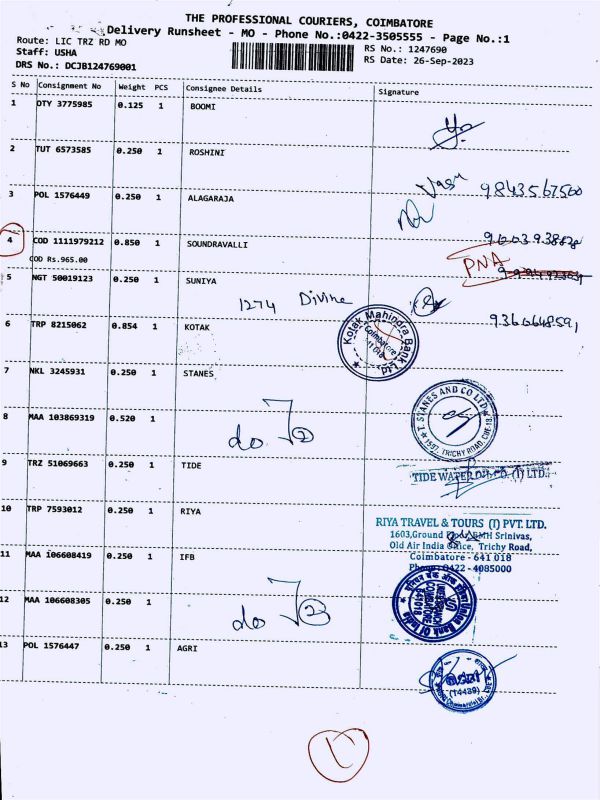 THE PROFESSIONAL COURIERS, COIMBATORE
Delivery Runsheet - MO - Phone No.:0422-3505555 - Page No.:1
Route: LIC TRZ RD MO
RS No.: 1247690
Staff: USHA
RS Date: 26-Sep-2023
DRS No.: DCJB124769001
S No Consignment No Weight PCS Consignee Details Signature
1 OTY 3775985 0.125 1 BOOMI
2 TUT 6573585 0.250 1 ROSHINI
Vasu 9843567500
3 POL 1576449 0.250 1 ALAGARAJA
4 COD 1111979212 0.850 1 SOUNDRAVALLI
COD Rs.965.00
PNA
5 NGT 50019123 0.250 1 SUNIYA
1274 Divine
6 TRP 8215062 0.854 1 KOTAK
Kotak Mahindra Bank Ltd.
Coimbatore
641 018
7 NKL 3245931 0.250 1 STANES
T. STANES AND CO LTD
1597, TRICHY ROAD, CBE-18.
8 MAA 103869319 0.520 1
do
9 TRZ 51069663 0.250 1 TIDE
TIDE WATER OIL CO. (I) LTD.
10 TRP 7593012 0.250 1 RIYA
RIYA TRAVEL & TOURS (I) PVT. LTD.
1603,Ground Floor, BMH Srinivas,
Old Air India Office, Trichy Road,
Coimbatore - 641 018
Phone : 0422 - 4085000
11 MAA 106608419 0.250 1 IFB
Union Bank Of India
COIMBATORE
641018
12 MAA 106608305 0.250 1
do
13 POL 1576447 0.250 1 AGRI
(14439)